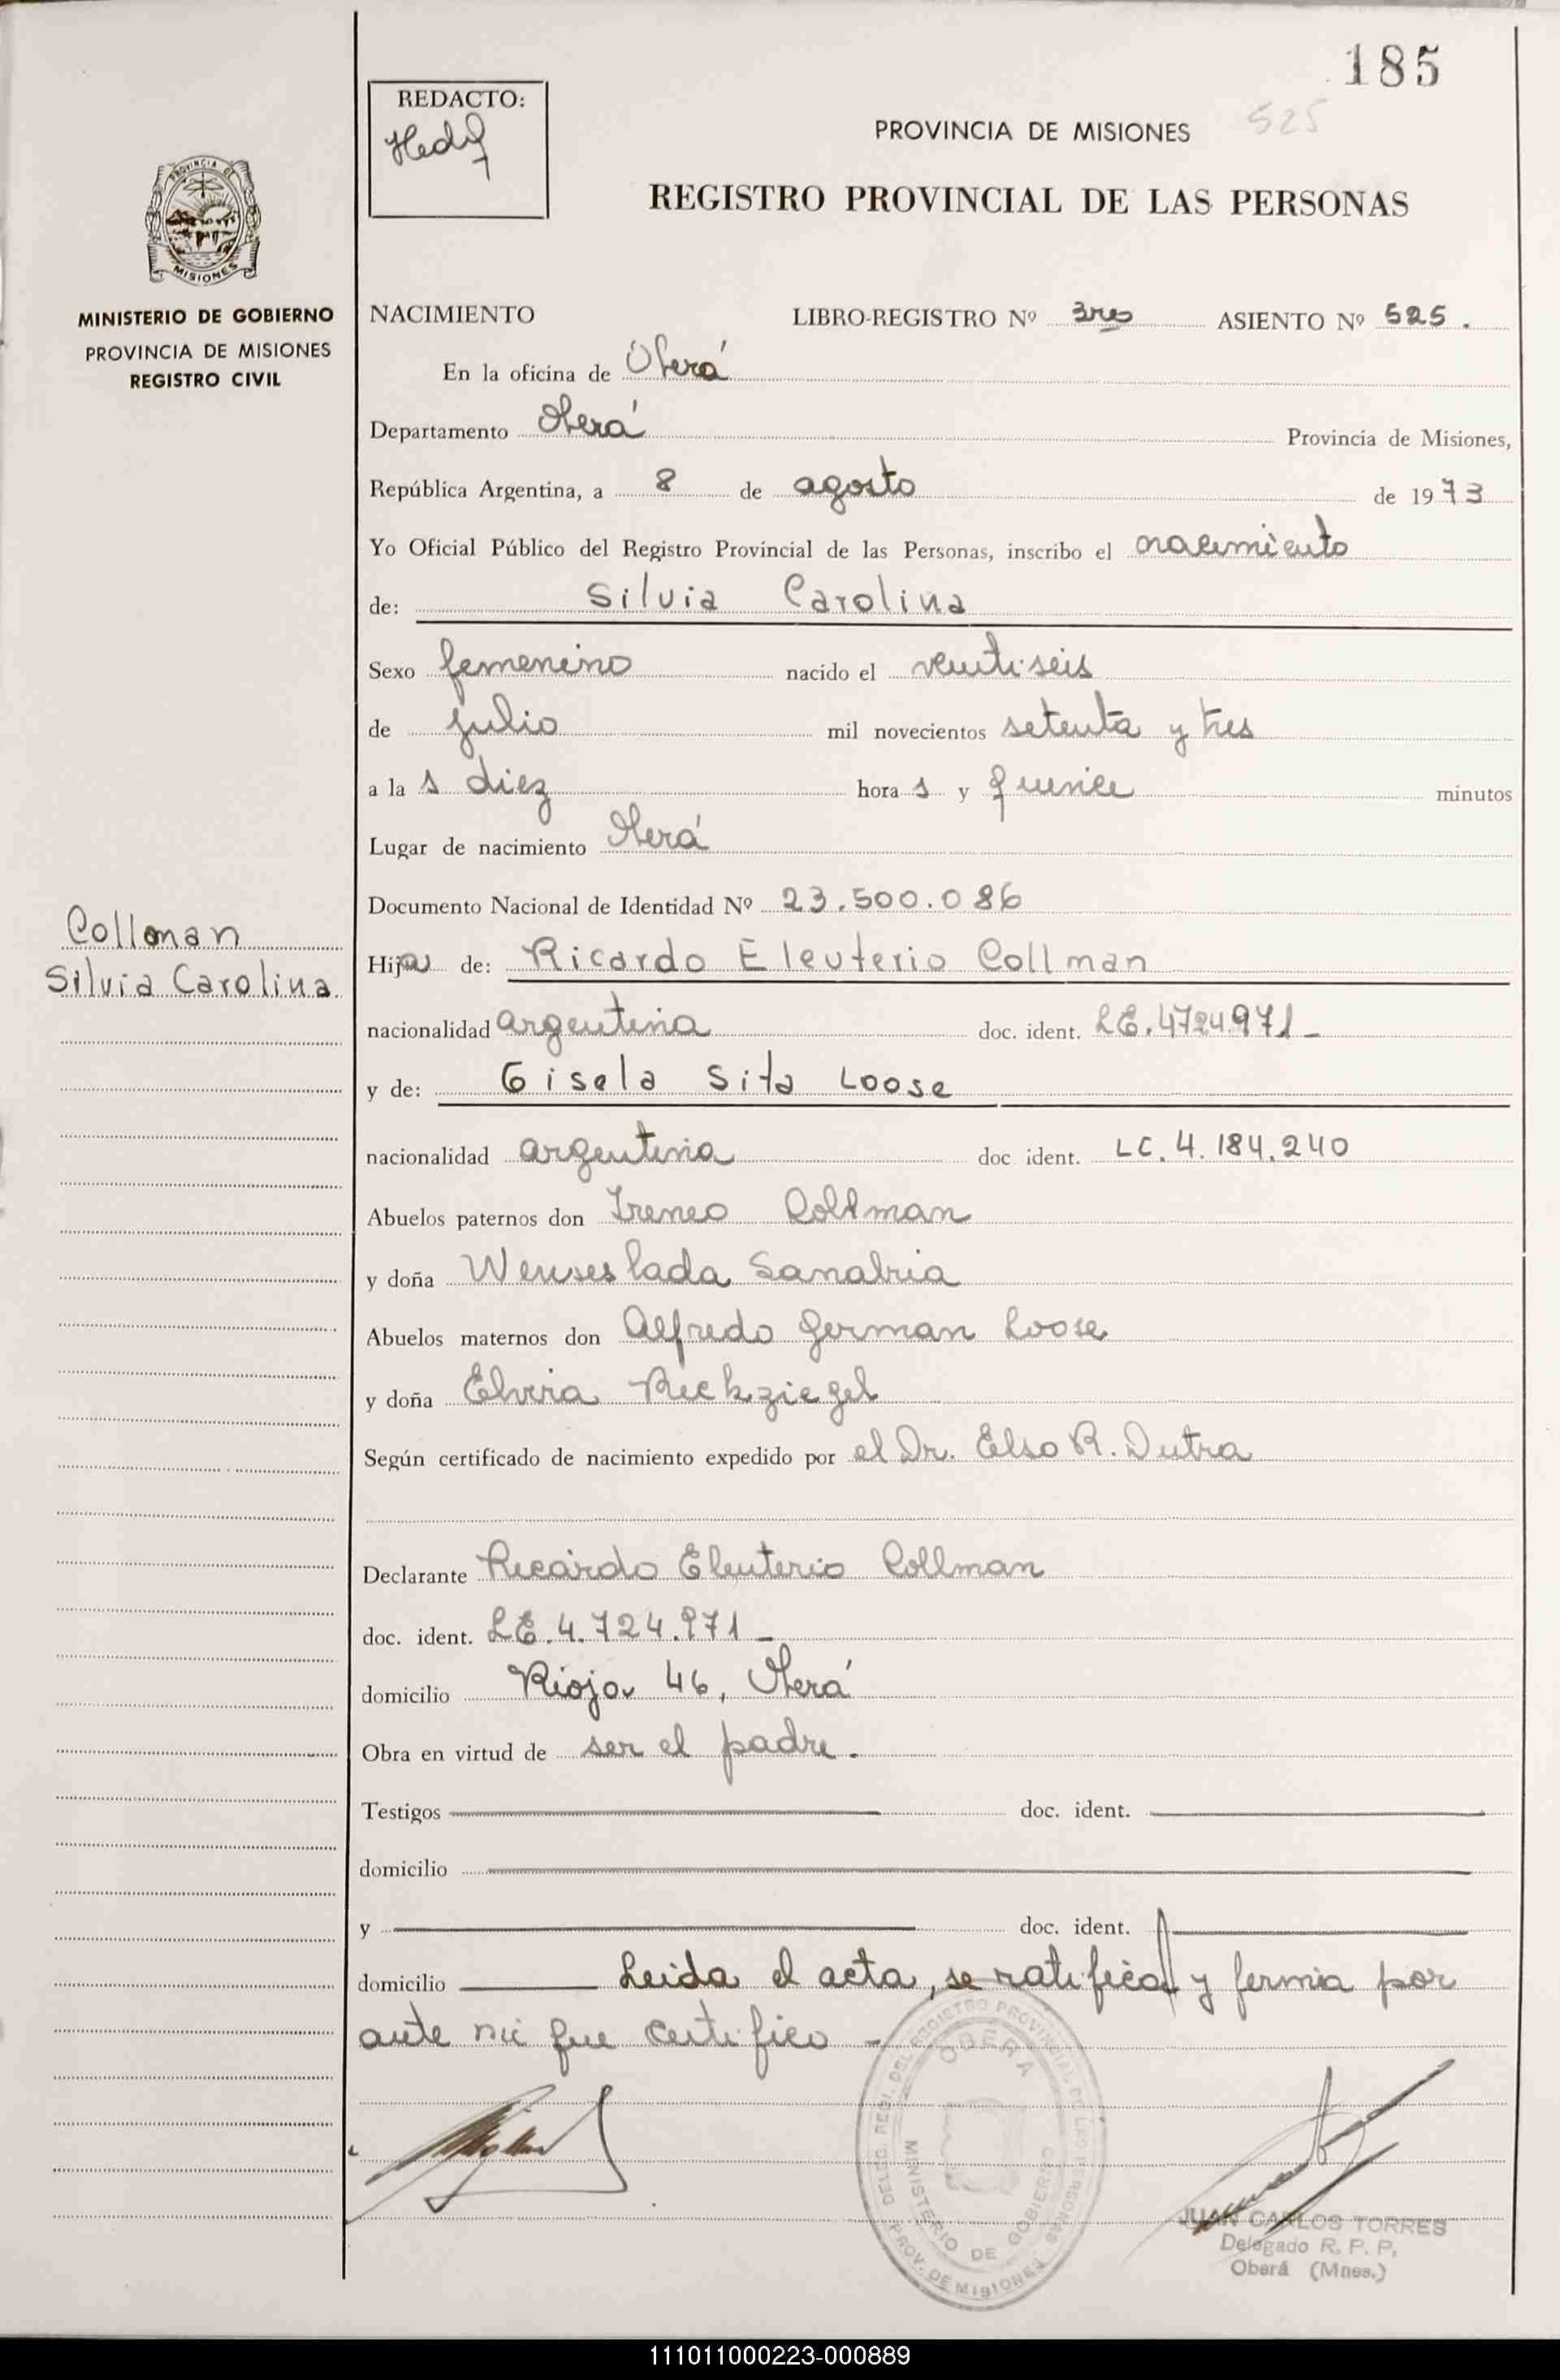 185
REDACTO:
PROVINCIA DE MISIONES 525
REGISTRO PROVINCIAL DE LAS PERSONAS
PROVINCIA DE
MISIONES
MINISTERIO DE GOBIERNO
PROVINCIA DE MISIONES
REGISTRO CIVIL
NACIMIENTO LIBRO-REGISTRO Nº 3res ASIENTO Nº 525.
En la oficina de Oberá
Departamento Oberá Provincia de Misiones,
República Argentina, a 8 de agosto de 1973
Yo Oficial Público del Registro Provincial de las Personas, inscribo el nacimiento
de: Silvia Carolina
Sexo femenino nacido el veintiseis
de julio mil novecientos setenta y tres
a la s diez hora s y quince minutos
Lugar de nacimiento Oberá
Documento Nacional de Identidad Nº 23.500.086
Collman
Silvia Carolina
Hija de: Ricardo Eleuterio Collman
nacionalidad argentina doc. ident. LE.4724971
y de: Gisela Sita Loose
nacionalidad argentina doc ident. LC. 4.184.240
Abuelos paternos don Ireneo Collman
y doña Wenseslada Sanabria
Abuelos maternos don Alfredo German Loose
y doña Elvira Reckziegel
Según certificado de nacimiento expedido por el Dr. Elso R. Dutra
Declarante Ricardo Eleuterio Collman
doc. ident. LE.4.724.971
domicilio Rioja 46, Oberá
Obra en virtud de ser el padre.
Testigos doc. ident.
domicilio
y doc. ident.
domicilio Leida el acta, se ratifica y firma por
ante mi que certifico -
DELEG. REGI. DEL REGISTRO PROVINCIAL DE LAS PERSONAS
OBERA
MINISTERIO DE GOBIERNO
PROV. DE MISIONES
JUAN CARLOS TORRES
Delegado R. P. P.
Oberá (Mnes.)
111011000223-000889